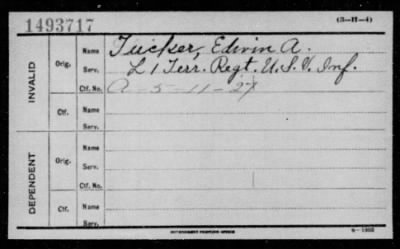 1493717
(3-H-4)
INVALID
Orig.
Name
Tucker, Edwin A.
Serv.
L 1 Terr. Regt. U.S.V. Inf.
Ctf. No.
A-5-11-27
Ctf.
Name
Serv.
DEPENDENT
Orig.
Name
Serv.
Ctf. No.
Ctf.
Name
Serv.
GOVERNMENT PRINTING OFFICE